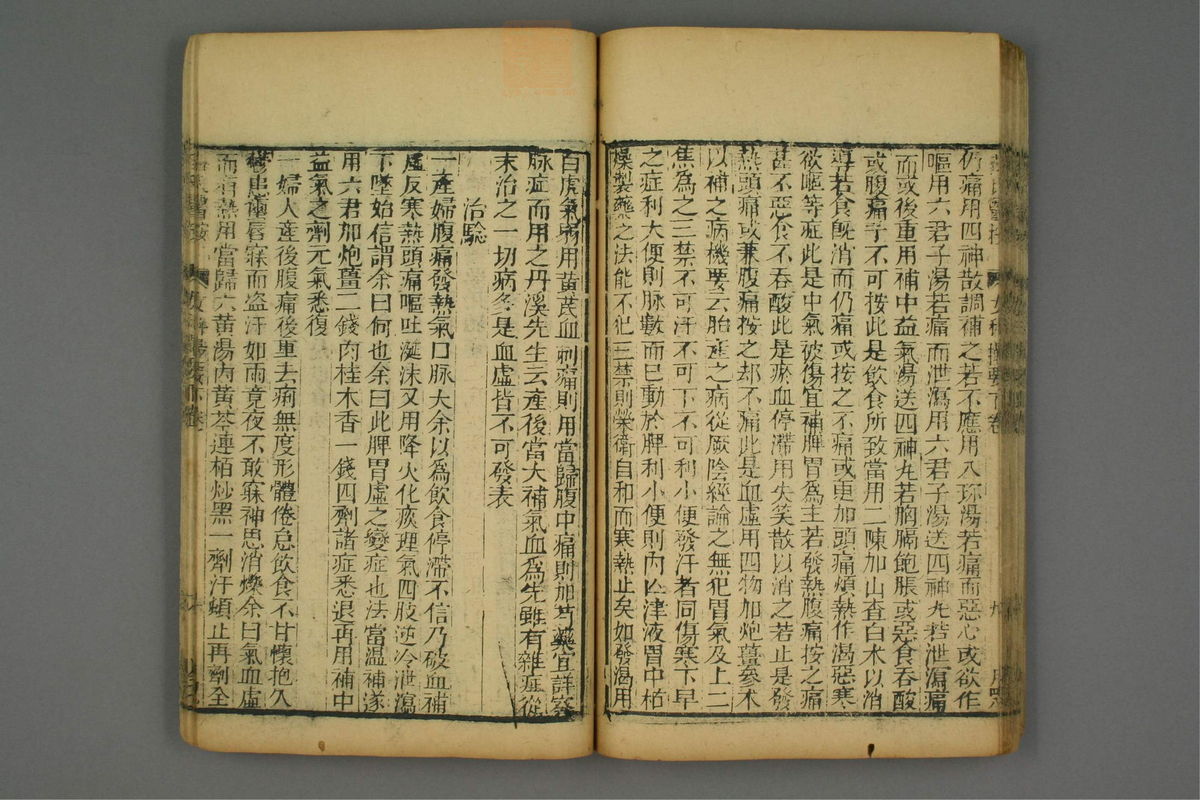 仍痛用四神散調補之若不應用八珍湯若痛而惡心或欲作
嘔用六君子湯若痛而泄瀉用六君子湯送四神丸若泄瀉痛
而或後重用補中益氣湯送四神丸若胸膈飽脹或惡食吞酸
或腹痛手不可按此是飲食所致當用二陳加山查白朮以消
導若食既消而仍痛或按之不痛或更加頭痛煩熱作渴惡寒
欲嘔等症此是中氣被傷宜補脾胃爲主若發熱腹痛按之痛
甚不惡食不吞酸此是瘀血停滯用失笑散以消之若止是發
熱頭痛或兼腹痛按之却不痛此是血虛用四物加炮薑參朮
以補之病機要云胎產之病從厥陰經論之無犯胃氣及上二
焦為之三禁不可汗不可下不可利小便發汗者同傷寒下早
之症利大便則脉數而已動於脾利小便則內亾津液胃中枯
燥製藥之法能不犯三禁則榮衛自和而寒熱止矣如發渴用
白虎氣弱用黃芪血刺痛則用當歸腹中痛則加芍藥宜詳察
脉症而用之丹溪先生云產後當大補氣血爲先雖有雜症從
末治之一切病多是血虛皆不可發表
治驗
一產婦腹痛發熱氣口脉大余以爲飲食停滯不信乃破血補
虛反寒熱頭痛嘔吐涎沫又用降火化痰理氣四肢逆冷泄瀉
下墜始信謂余曰何也余曰此脾胃虛之變症也法當温補遂
用六君加炮薑二錢肉桂木香一錢四劑諸症悉退再用補中
益氣之劑元氣悉復
一婦人產後腹痛後重去痢無度形體倦怠飲食不甘懷抱久
鬱患繭唇寐而盗汗如雨竟夜不敢寐神思消爍余曰氣血虛
而有熱用當歸六黃湯內黃芩連栢炒黑一劑汗頓止再劑全
女科撮要下卷